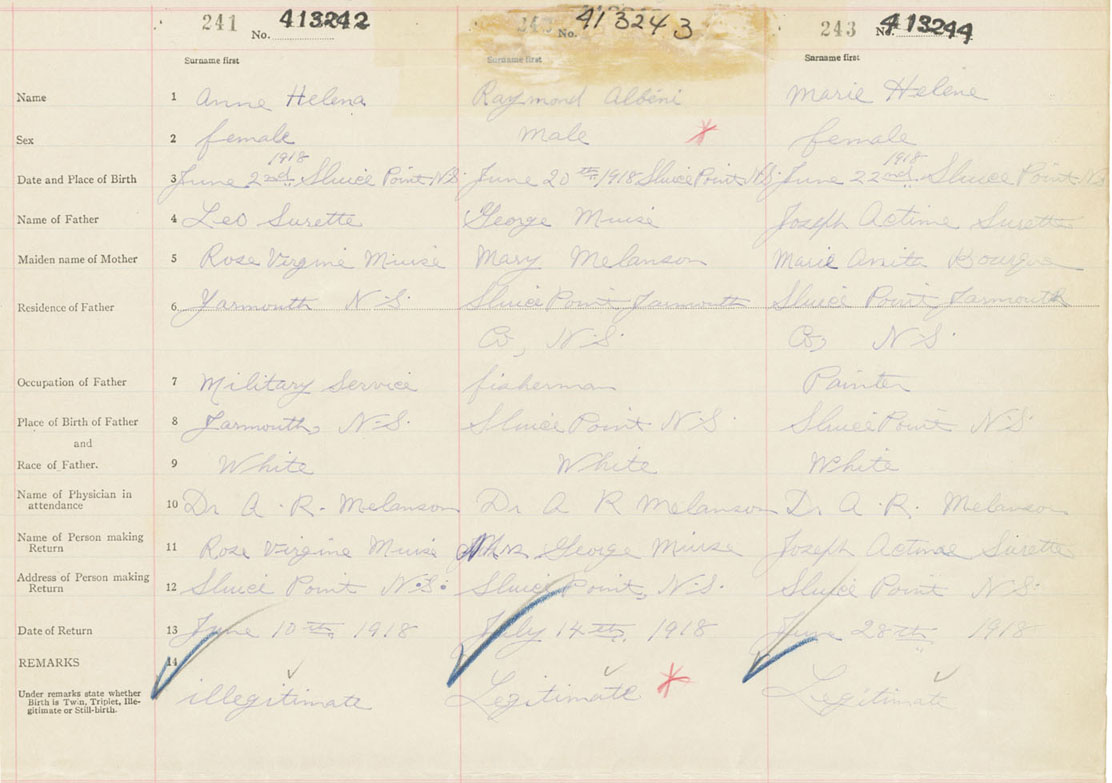 241 No. 413242 242 No. 413243 243 No. 413244
Surname first Surname first Surname first
Name 1 Anne Helena Raymond Albéni Marie Helene
Sex 2 female male female
1918 1918
Date and Place of Birth 3 June 2nd. Sluice Point N.S. June 20th 1918 Sluice Point N.S. June 22nd. Sluice Point N.S.
Name of Father 4 Leo Surette George Muise Joseph Actime Surette
Maiden name of Mother 5 Rose Virgine Muise Mary Melanson Marie Anita Bourque
Residence of Father 6 Yarmouth N.S. Sluice Point Yarmouth Sluice Point Yarmouth
Co, N.S. Co, N.S.
Occupation of Father 7 Military Service fisherman Painter
Place of Birth of Father 8 Yarmouth, N.S. Sluice Point N.S Sluice Point N.S.
and
Race of Father. 9 White White White
Name of Physician in
attendance 10 Dr A. R. Melanson Dr A R Melanson Dr A. R. Melanson
Name of Person making
Return 11 Rose Virgine Muise Mrs George Muise Joseph Surette
Address of Person making
Return 12 Sluice Point N.S. Sluice Point, N.S. Sluice Point N.S.
Date of Return 13 June 10th, 1918 July 14th, 1918 June 28th, 1918
REMARKS 14
Under remarks state whether
Birth is Twin, Triplet, Ille-
gitimate or Still-birth. illegitimate Legitimate Legitimate